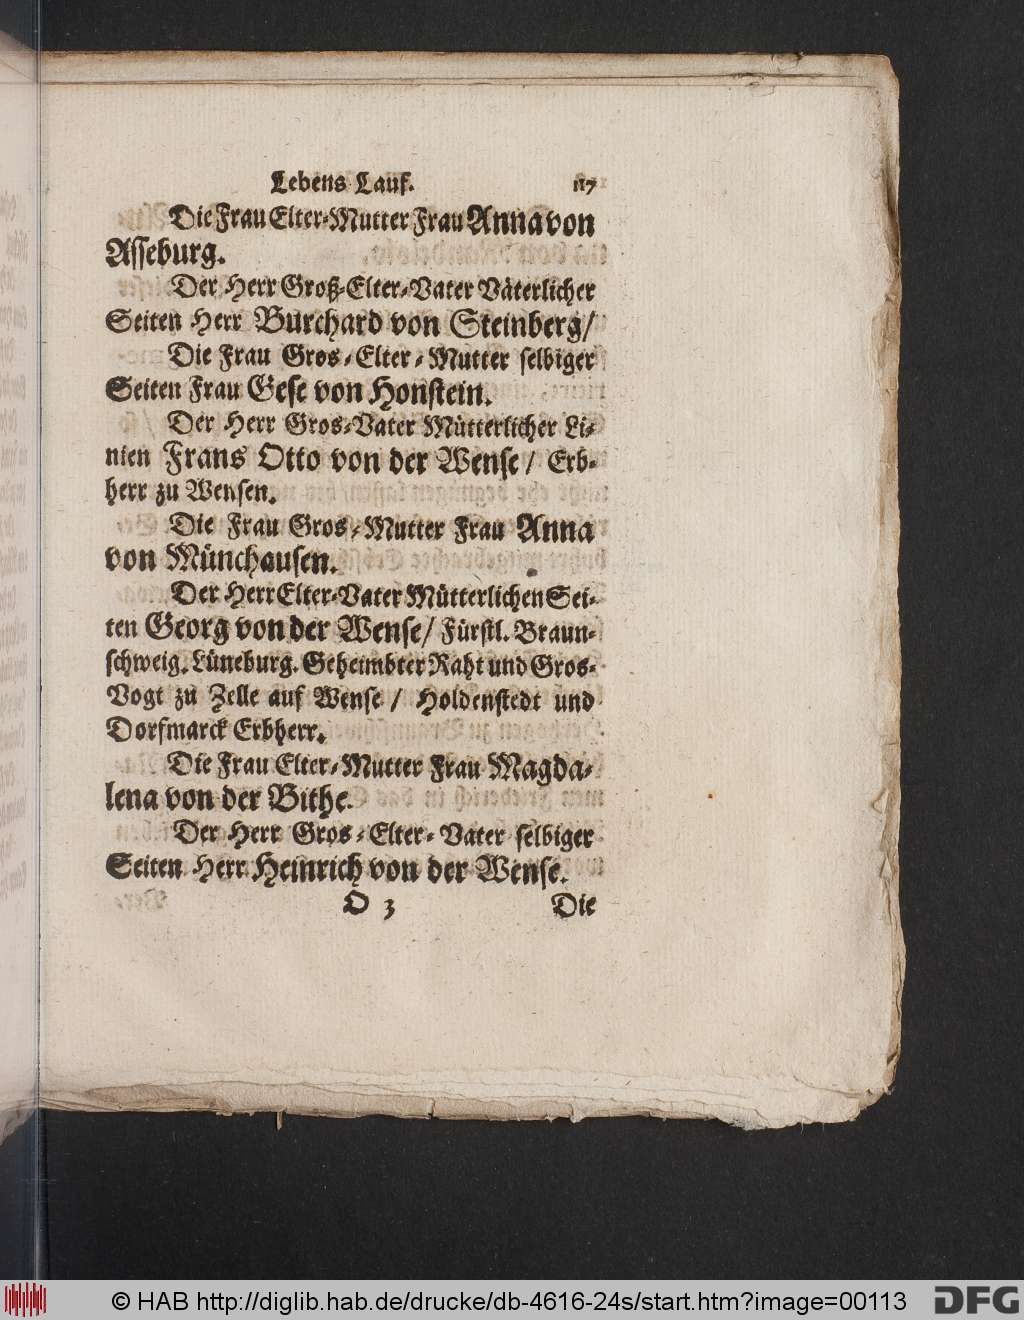 Lebens Lauf. 117
Die Frau Elter-Mutter Frau Anna von
Asseburg.
Der Herr Groß-Elter-Vater Väterlicher
Seiten Herr Burchard von Steinberg/
Die Frau Gros-Elter-Mutter selbiger
Seiten Frau Gese von Honstein.
Der Herr Gros-Vater Mütterlicher Li-
nien Frans Otto von der Wense / Erb-
herr zu Wensen.
Die Frau Gros-Mutter Frau Anna
von Münchausen.
Der Herr Elter-Vater Mütterlichen Sei-
ten Georg von der Wense/ Fürstl. Braun-
schweig. Lüneburg. Geheimbter Raht und Gros-
Vogt zu Zelle auf Wense / Holdenstedt und
Dorfmarck Erbherr.
Die Frau Elter-Mutter Frau Magda-
lena von der Bithe.
Der Herr Gros-Elter-Vater selbiger
Seiten Herr Heinrich von der Wense.
O 3 Die
© HAB http://diglib.hab.de/drucke/db-4616-24s/start.htm?image=00113 DFG